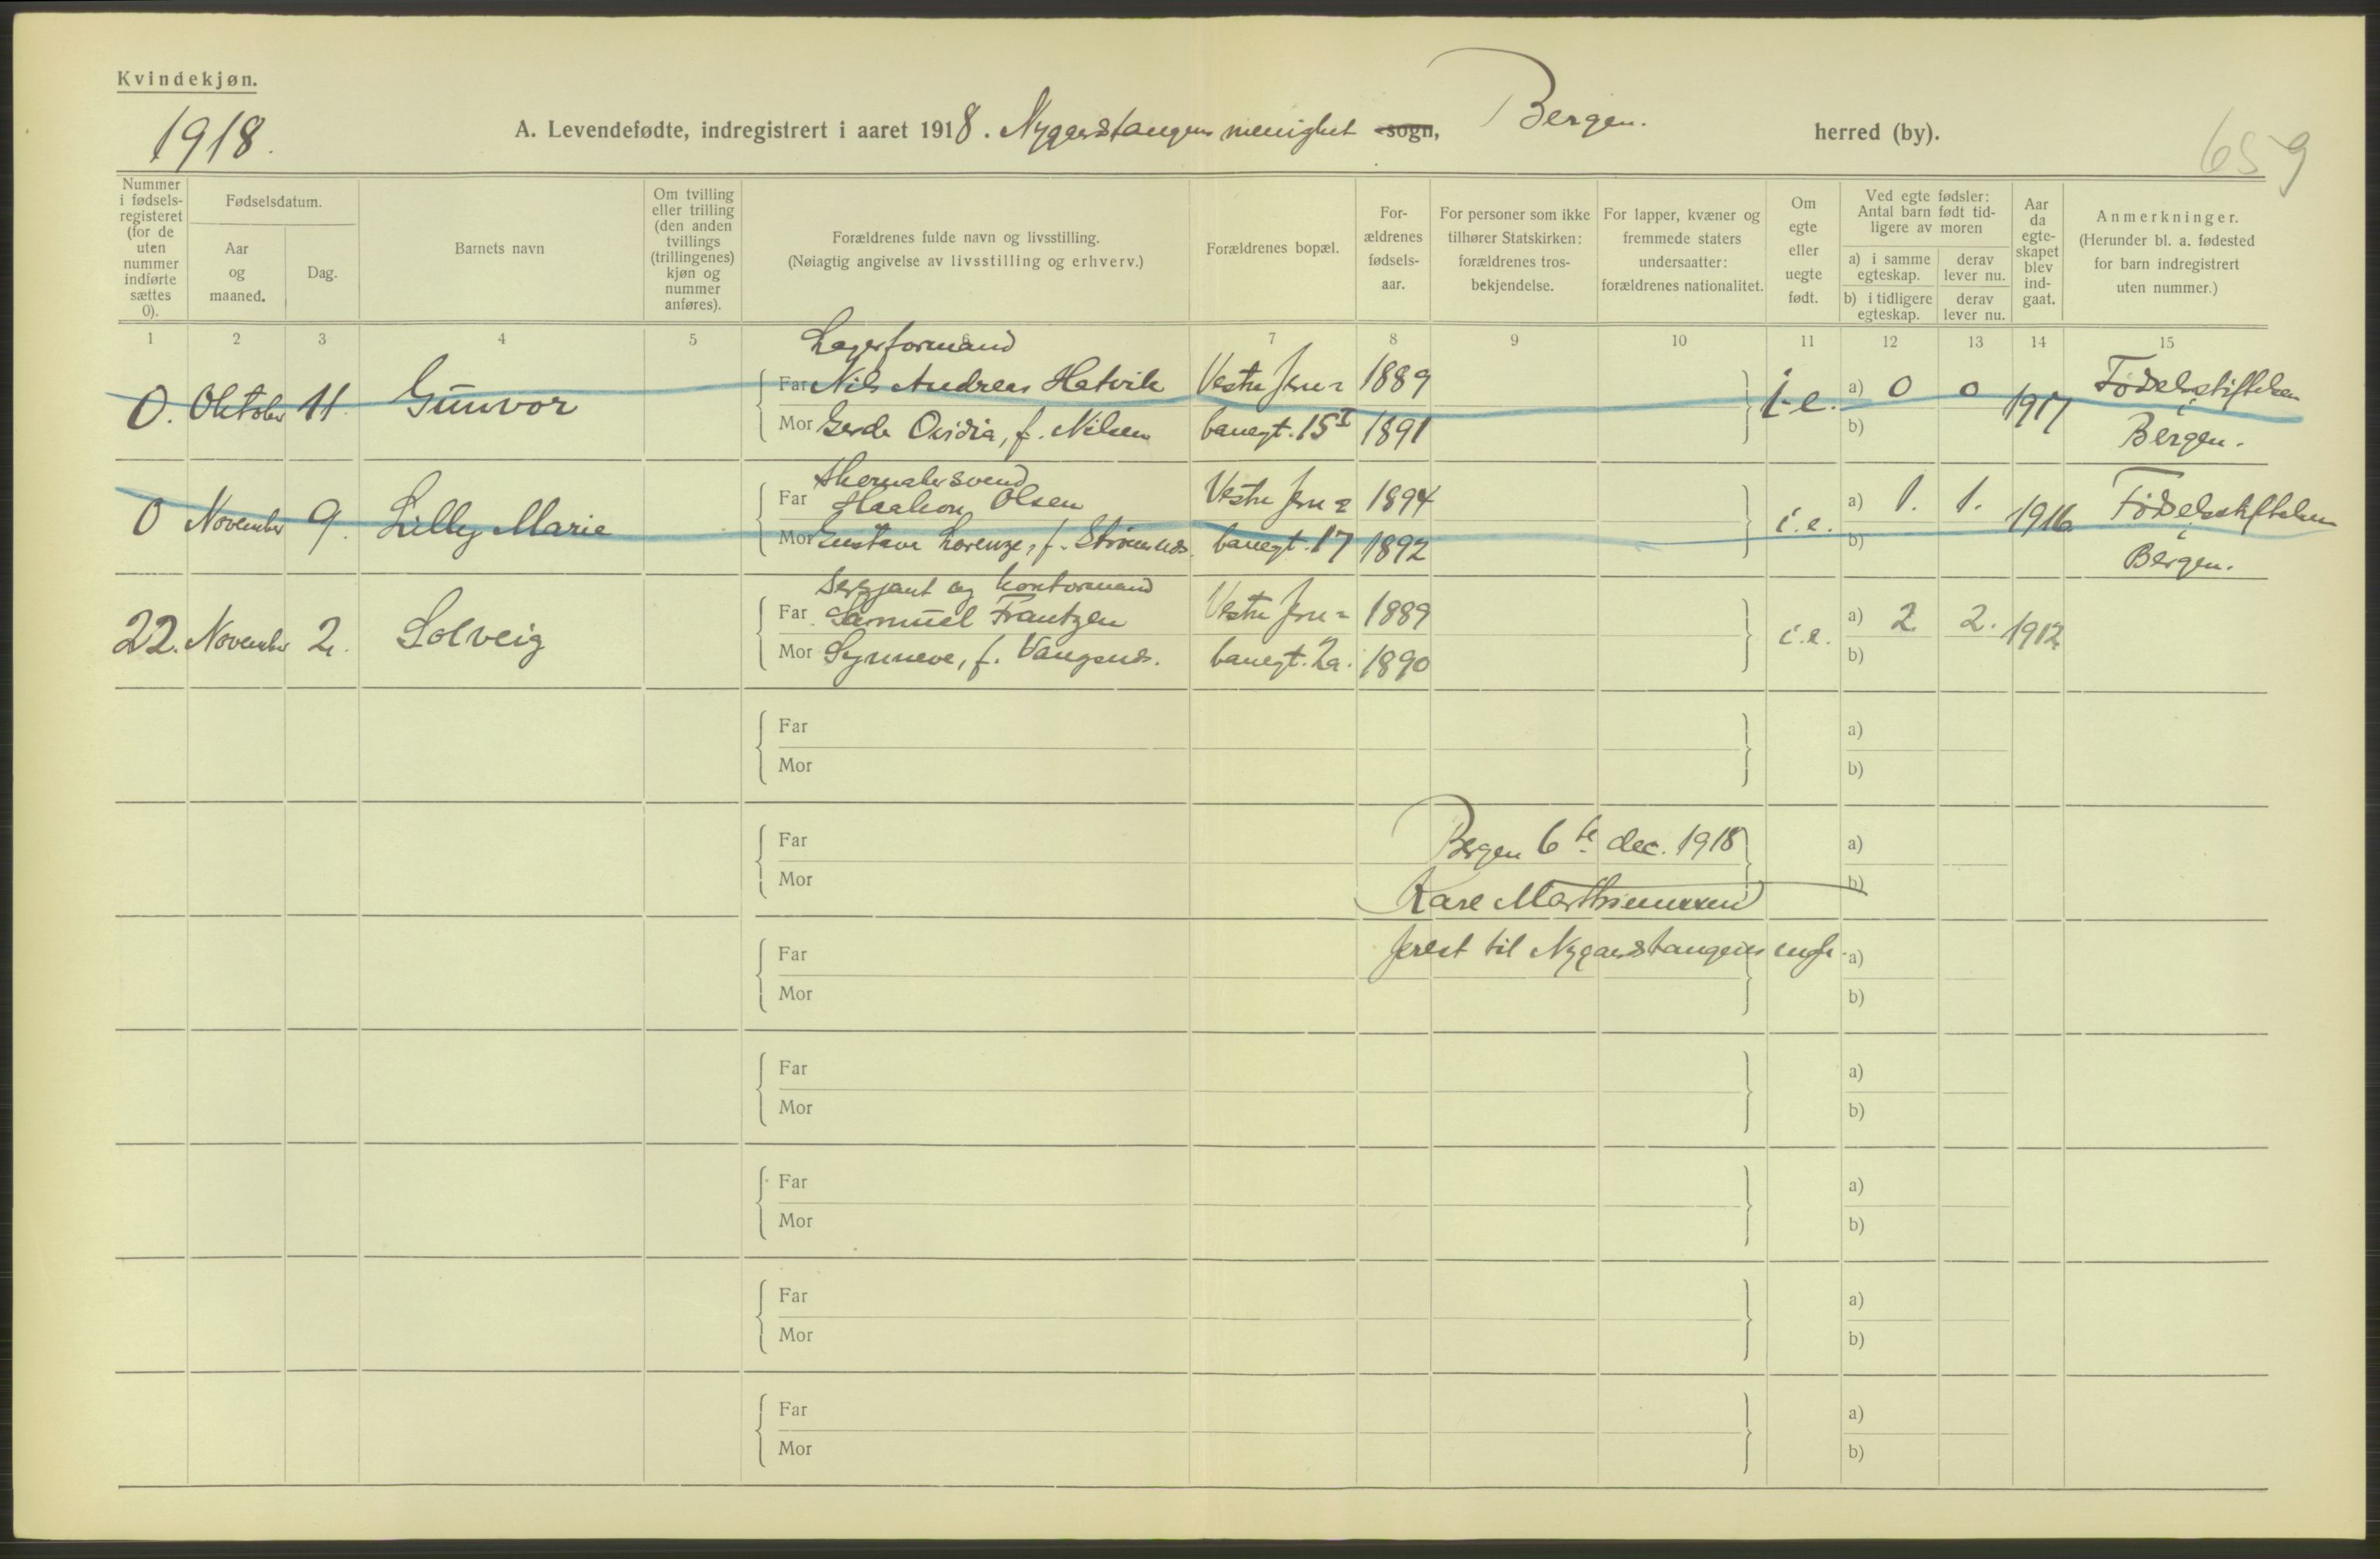 Kvindekjøn.
1918.
A. Levendefødte, indregistrert i aaret 1918. Nygaardstangens menighet sogn, Bergen. herred (by).
659
Nummer i fødsels-registeret (for de uten nummer indførte sættes 0).
Fødselsdatum.
Aar og maaned.
Dag.
Barnets navn
Om tvilling eller trilling (den anden tvillings (trillingenes) kjøn og nummer anføres).
Forældrenes fulde navn og livsstilling.
(Nøiagtig angivelse av livsstilling og erhverv.)
Forældrenes bopæl.
For-ældrenes fødsels-aar.
For personer som ikke tilhører Statskirken: forældrenes tros-bekjendelse.
For lapper, kvæner og fremmede staters undersaatter: forældrenes nationalitet.
Om egte eller uegte født.
Ved egte fødsler: Antal barn født tid-ligere av moren
a) i samme egteskap.
derav lever nu.
b) i tidligere egteskap.
derav lever nu.
Aar da egte-skapet blev ind-gaat.
Anmerkninger.
(Herunder bl. a. fødested for barn indregistrert uten nummer.)
1 2 3 4 5 6 7 8 9 10 11 12 13 14 15
Lagerformand
0. Oktober 11. Gunvor Far Nils Andreas Hatvik Vestre Jern= 1889 i.e. a) 0 0 1917 Fødselsstiftelsen
Mor Gerda Ovidia, f. Nilsen banegt. 15 I 1891 b) Bergen.
Skomakersvend
0 November 9. Lilly Marie Far Haakon Olsen Vestre Jern= 1894 i.e. a) 1. 1. 1916 Fødselsstiftelsen
Mor Gustava Lorenze, f. Strømsnes. banegt. 17 1892 b) Bergen.
Sersjant og kontormand
22. November 2. Solveig Far Samuel Frantzen Vestre Jern= 1889 i.e. a) 2 2. 1912
Mor Synneve, f. Vangsnes. banegt. 2a. 1890 b)
Far a)
Mor b)
Far Bergen 6te dec. 1918 a)
Mor b)
Marthinussen
Far prest til Nygaardstangens mgh. a)
Mor b)
Far a)
Mor b)
Far a)
Mor b)
Far a)
Mor b)
Far a)
Mor b)